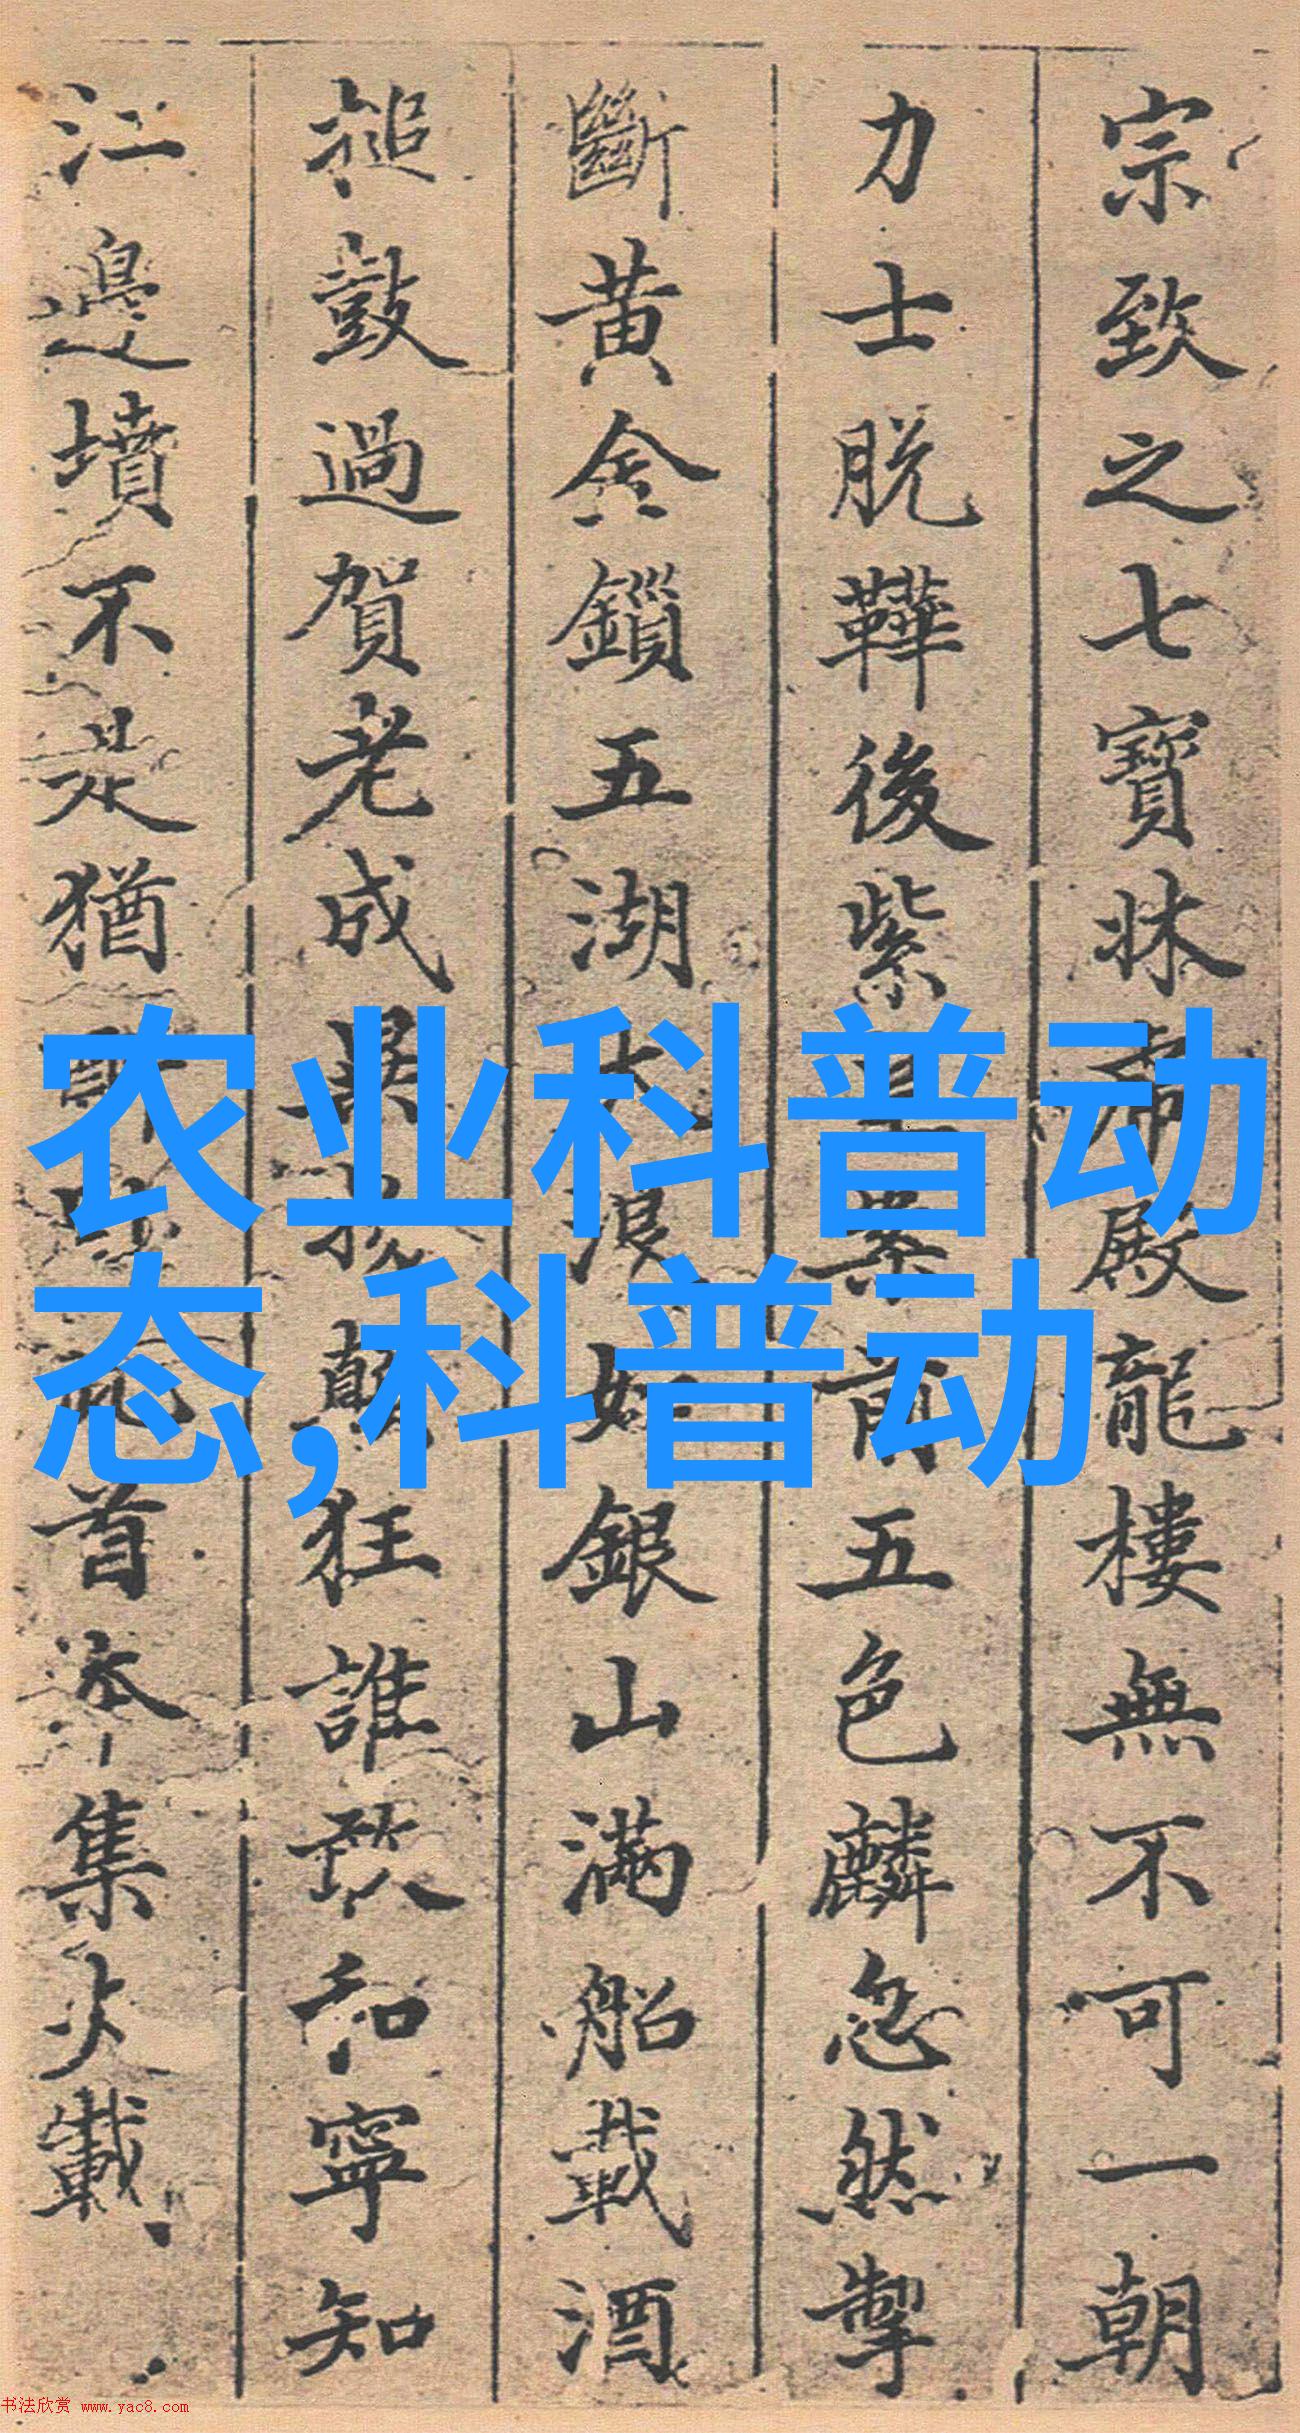 宗致之七寶牀殿龍樓無不可一朝
力士脫鞾後紫案前五色麟忽然掣
斷黃金鎖五湖大浪如銀山滿船載酒
搥鼓過賀老成異物顛狂誰敢和寧知
江邊墳不是猶首本集載
农业科普动
态,科普动
书法欣赏 www.yac8.com